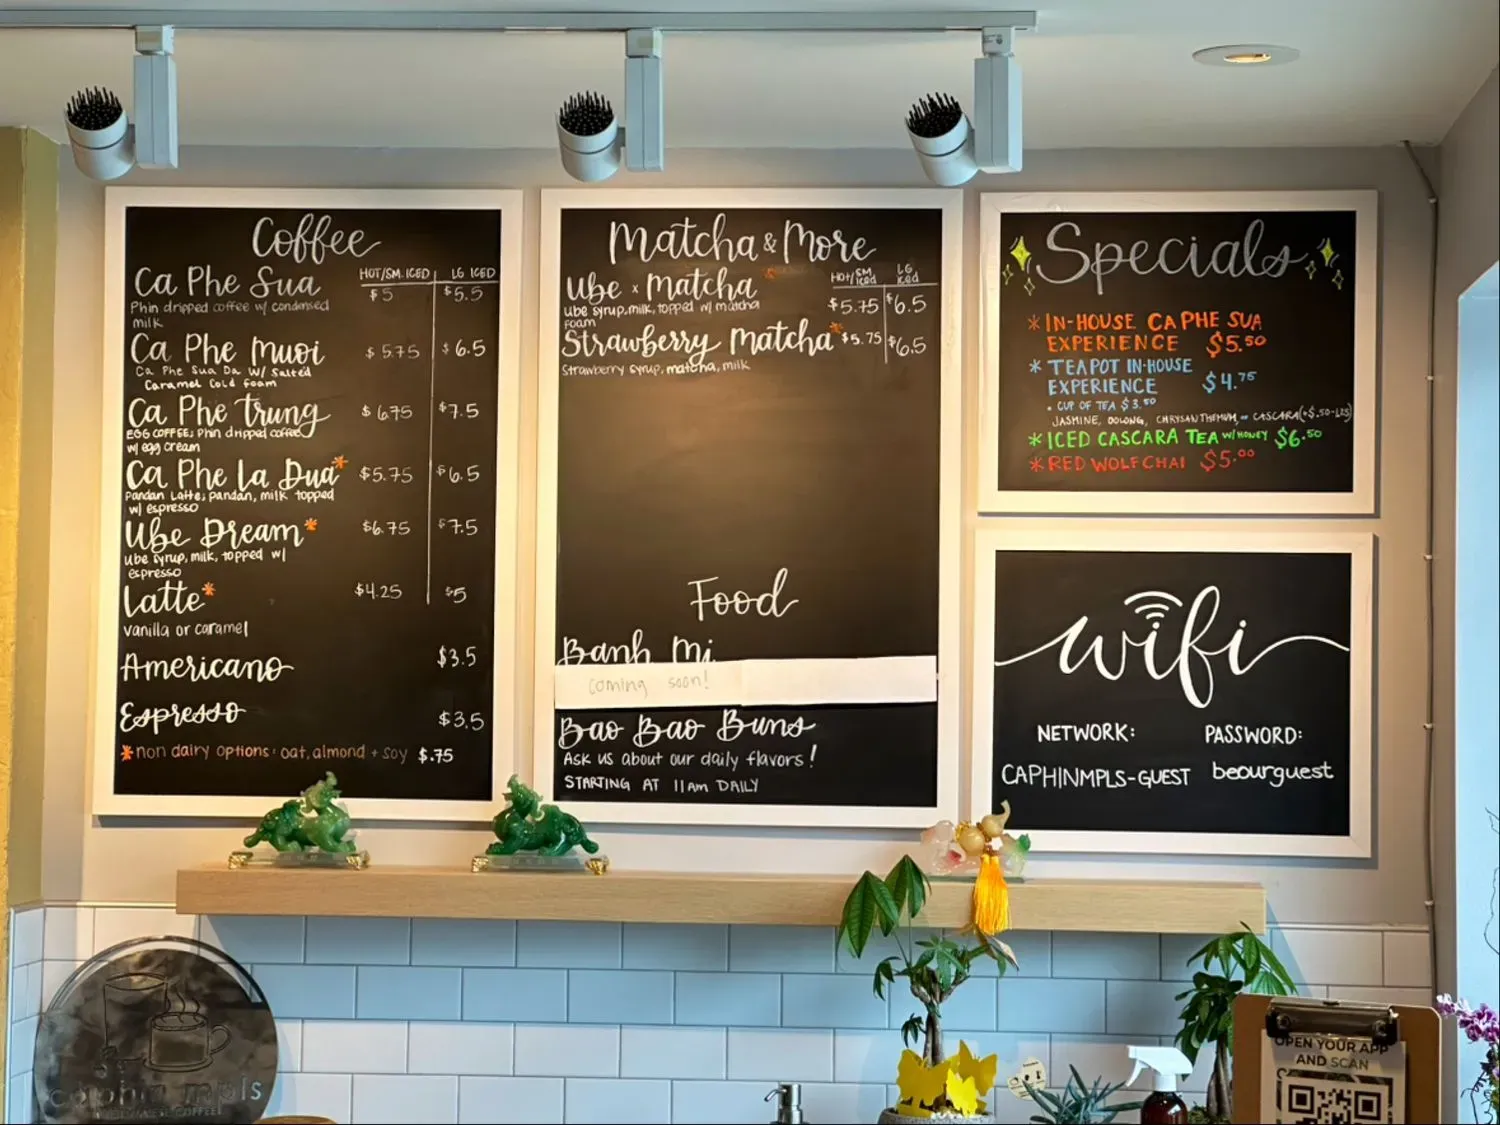 Coffee
HOT/SM. ICED LG ICED
Ca Phe Sua $5 $5.5
Phin dripped coffee w/ condensed
milk
Ca Phe Muoi $5.75 $6.5
Ca Phe Sua Da w/ Salted
Caramel Cold foam
Ca Phe Trung $6.75 $7.5
EGG COFFEE; Phin dripped coffee
w/ egg cream
Ca Phe La Dua* $5.75 $6.5
Pandan Latte; pandan, milk topped
w/ espresso
Ube Dream* $6.75 $7.5
Ube syrup, milk, topped w/
espresso
Latte* $4.25 $5
vanilla or caramel
Americano $3.5
Espresso $3.5
*non dairy options: oat, almond + soy $.75
Matcha & More
HOT/SM. iced LG iced
Ube x Matcha* $5.75 $6.5
Ube syrup, milk, topped w/ matcha
foam
Strawberry Matcha* $5.75 $6.5
Strawberry syrup, matcha, milk
Food
Banh Mi
Coming soon!
Bao Bao Buns
Ask us about our daily flavors!
STARTING AT 11am DAILY
Specials
* IN-HOUSE CA PHE SUA
EXPERIENCE $5.50
* TEAPOT IN-HOUSE
EXPERIENCE $4.75
• CUP OF TEA $3.50
JASMINE, OOLONG, CHRYSANTHEMUM, or CASCARA(+$.50-1.25)
* ICED CASCARA TEA W/HONEY $6.50
* RED WOLF CHAI $5.00
wifi
NETWORK: PASSWORD:
CAPHINMPLS-GUEST beourguest
caphin mpls
OPEN YOUR APP
AND SCAN